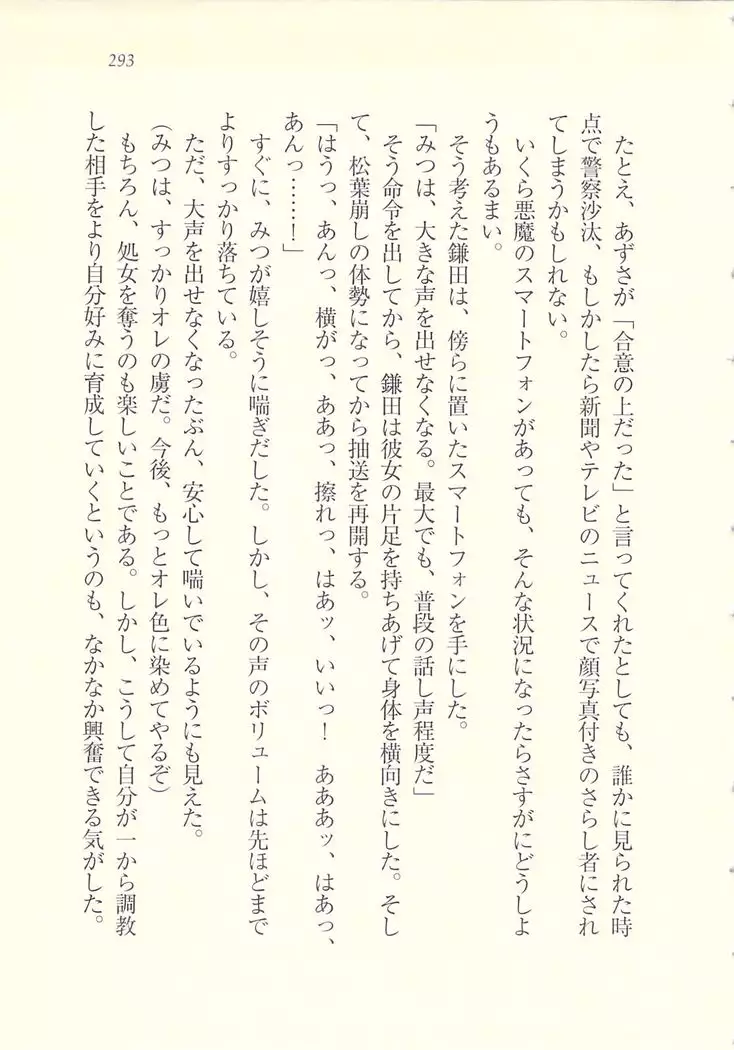 293
たとえ、あずさが「合意の上だった」と言ってくれたとしても、誰かに見られた時
点で警察沙汰、もしかしたら新聞やテレビのニュースで顔写真付きのさらし者にされ
てしまうかもしれない。
いくら悪魔のスマートフォンがあっても、そんな状況になったらさすがにどうしよ
うもあるまい。
そう考えた鎌田は、傍らに置いたスマートフォンを手にした。
「みつは、大きな声を出せなくなる。最大でも、普段の話し声程度だ」
そう命令を出してから、鎌田は彼女の片足を持ちあげて身体を横向きにした。そし
て、松葉崩しの体勢になってから抽送を再開する。
「はうっ、あんっ、横がっ、ああっ、擦れっ、はあッ、いいっ!　あああッ、はあっ、
あんっ……!」
すぐに、みつが嬉しそうに喘ぎだした。しかし、その声のボリュームは先ほどまで
よりすっかり落ちている。
ただ、大声を出せなくなったぶん、安心して喘いでいるようにも見えた。
(みつは、すっかりオレの虜だ。今後、もっとオレ色に染めてやるぞ)
もちろん、処女を奪うのも楽しいことである。しかし、こうして自分が一から調教
した相手をより自分好みに育成していくというのも、なかなか興奮できる気がした。